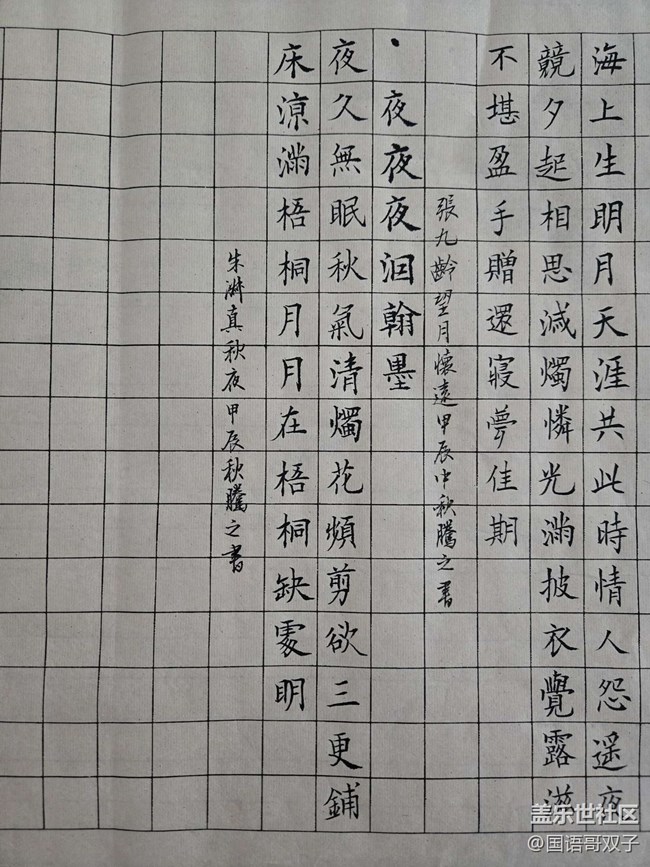 海上生明月天涯共此時情人怨遥夜
競夕起相思滅燭憐光滿披衣覺露滋
不堪盈手贈還寢夢佳期
張九齡望月懷遠甲辰中秋騰之書
·夜夜夜洄翰墨
夜久無眠秋氣清燭花頻剪欲三更鋪
床涼滿梧桐月月在梧桐缺處明
朱淑真秋夜甲辰秋騰之書
盖乐世社区
@国语哥双子